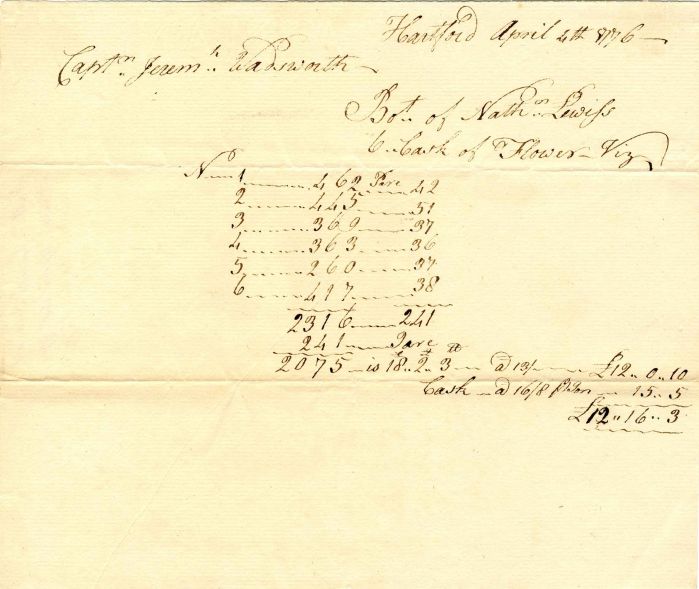 Hartford April 4th 1776
Captn. Jeremh. Wadsworth
Bot. of Nathn Lewiss
6 Cask of Flower Viz
No 1 462 Tare 42
2 445 51
3 369 37
4 363 36
5 260 37
6 417 38
2316 241
241 Tare
2075 is 18..2..3 lb @ 13/ £12..0..10
Cask @ 16/8 pr Ton 15..5
£12..16..3